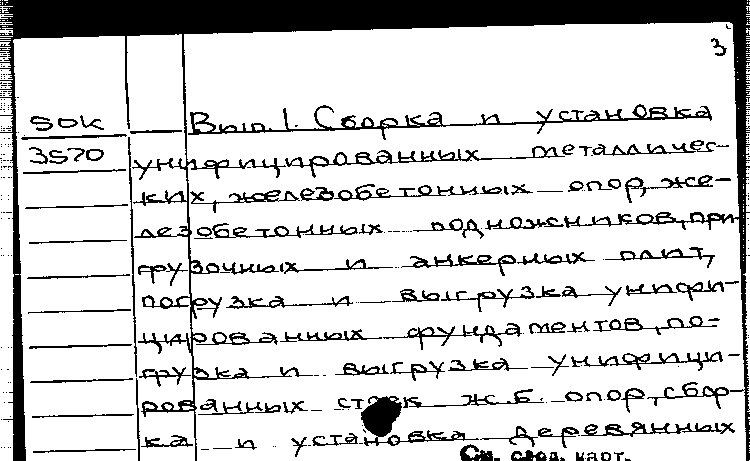 3
SOK Вып. 1. Сборка и установка
3570 унифицированных металличес-
ких, железобетонных опор, же-
лезобетонных подножников, при-
грузочных и анкерных плит,
погрузка и выгрузка унифи-
цированных фундаментов, по-
грузка и выгрузка унифици-
рованных стоек ж.б. опор, сбор-
ка и установка деревянных
См. след. карт.